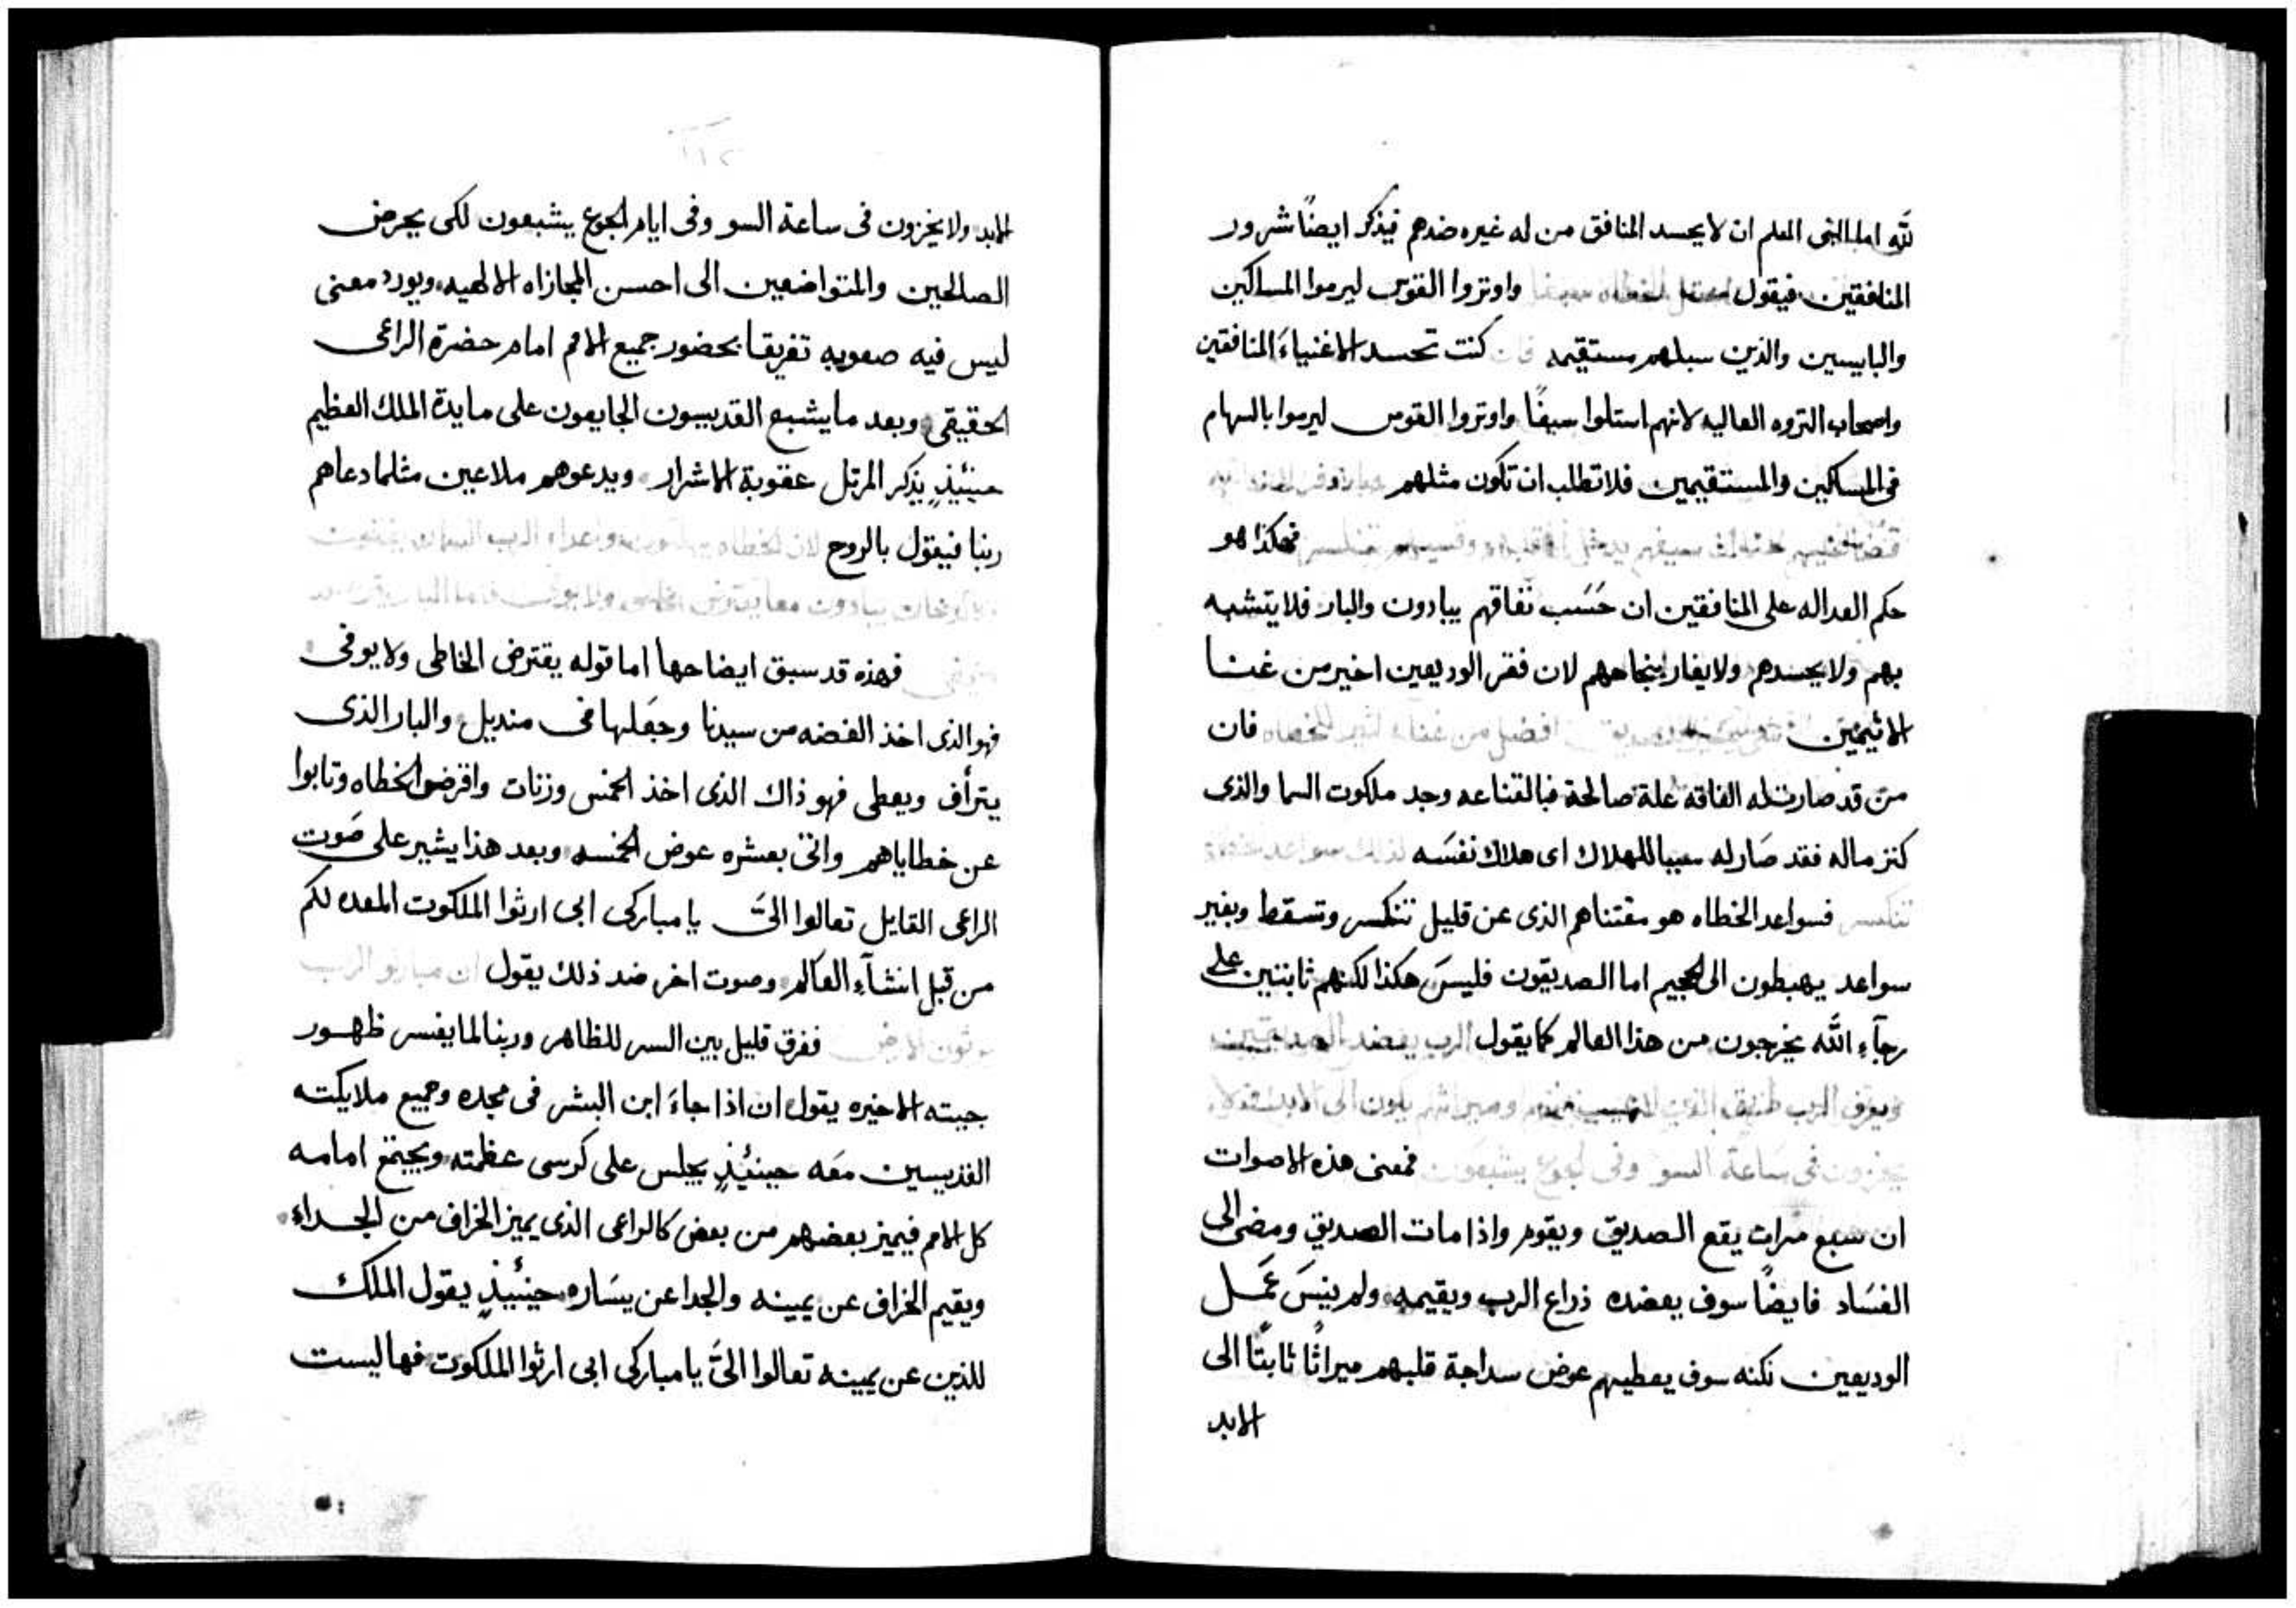 لله اما النبى المعلم ان لا يحسد المنافق من له غيره ضدهم فيذكر ايضًا شرور
المنافقين فيقول واوتروا القوس ليرموا المساكين
والبايسين والذين سبلهم مستقيمه فان كنت تحسد الاغنياءَ المنافقين
واصحاب الثروه العاليه لانهم استلوا سيفًا واوتروا القوس ليرموا بالسهام
فى المساكين والمستقيمين فلا تطلب ان تكون مثلهم
فهكذا هو
حكم العداله على المنافقين ان حَسَب نفاقهم يبادون والبار فلا يتشبه
بهم ولا يحسدهم ولا يغار بنجاحهم لان فقر الوديعين اخير من غنا
الاثيمين افضل من غناء للخطاه فان
من قد صارت له الفاقه علة صالحة فبالقناعه وجد ملكوت السما والذى
كنز ماله فقد صَار له سببا للهلاك اى هلاك نفسَه لذلك سواعد الخطاة
تنكسر فسواعد الخطاه هو مقتناهم الذى عن قليل تنكسر وتسقط وبغير
سواعد يهبطون الى الجحيم اما الصديقون فليسَ هكذا لكنهم ثابتين على
رجآءِ الله يخرجون من هذا العالم كما يقول الرب يعضد الصديقين
ويعرف الرب طريق الذين لا عيب فيهم وميراثهم يكون الى الابد ولا
يخزون فى ساعة السو وفى الجوع يشبعون فمعنى هذه الاصوات
ان سبع مرات يقع الصديق ويقوم واذا مات الصديق ومضى الى
الفسَاد فايضًا سوف يعضده ذراع الرب ويقيمه ولم ينسَ عَمَل
الوديعين لكنه سوف يعطيهم عوض سداجة قلبهم ميراثًا ثابتًا الى
الابد
الابد ولا يخزون فى ساعة السو وفى ايام الجوع يشبعون لكى يحرض
الصالحين والمتواضعين الى احسن المجازاه الالهيه ويورد معنى
ليس فيه صعوبه تفريقا بحضور جميع الامم امام حضرة الراعى
الحقيقى وبعد ما يشبع القديسون الجايعون على مايدة الملك العظيم
حينئيذٍ يذكر المرتل عقوبة الاشرار ويدعوهم ملاعين مثلما دعاهم
ربنا فيقول بالروح لان الخطاه يهلكون واعداء الرب
كالدخان يبادون معا يقترض الخاطى ولا يوفى فاما البار
فهذه قد سبق ايضاحها اما قوله يقترض الخاطى ولا يوفى
فهو الذى اخذ الفضه من سيدنا وجعَلها فى منديل والبار الذى
يترأف ويعطى فهو ذاك الذى اخذ الخمس وزنات واقرض الخطاه وتابوا
عن خطاياهم واتى بعشره عوض الخمسه وبعد هذا يشير على صَوت
الراعى القايل تعالوا الىَّ يا مباركى ابى ارثوا الملكوت المعده لكم
من قبل انشآءِ العالم وصوت اخر ضد ذلك يقول ان مباركو الرب
يرثون الارض ففرق قليل بين السر للظاهر وربنا لما يفسر ظهور
جيته الاخيره يقول ان اذا جاءَ ابن البشر فى مجده وجميع ملايكته
القديسين معَه حينئيذٍ يجلس على كرسى عظمته ويجتمع امامه
كل الامم فيميز بعضهم من بعض كالراعى الذى يميز الخراف من الجداءِ
ويقيم الخراف عن يمينه والجدا عن يسَاره حينئيذٍ يقول الملك
للذين عن يمينه تعالوا الىَّ يا مباركى ابى ارثوا الملكوت فها ليست